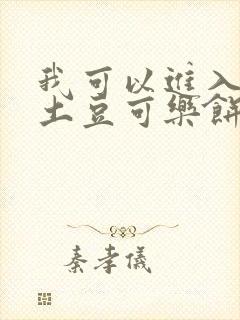 我可以進入
土豆可樂餅
秦孝儀